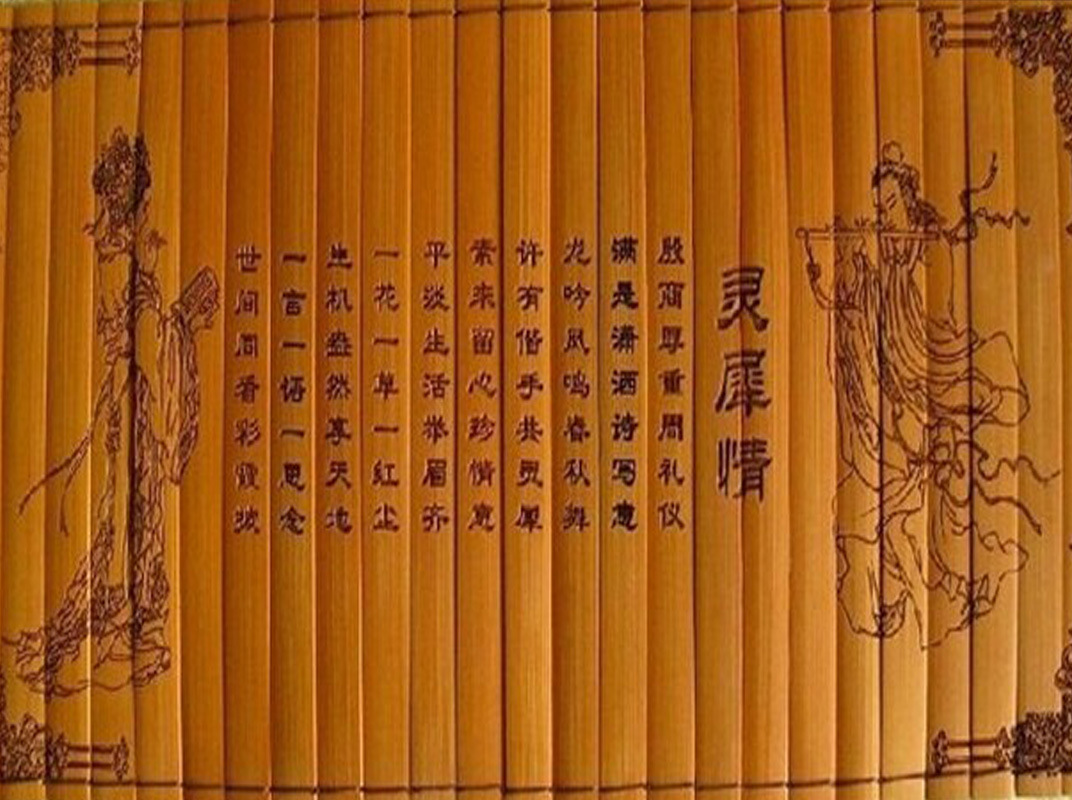 灵犀情
殷商厚重周礼仪
满是潇洒诗写意
龙吟凤鸣春秋舞
许有偕手共灵犀
素来留心珍惜意
平淡生活举眉齐
一花一草一红尘
生机盎然享天地
一言一语一思念
世间同看彩霞披